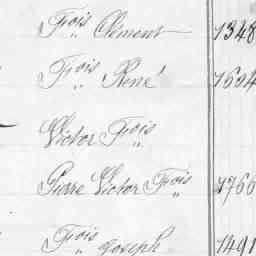 Frois „ Clément 1348
Frois „ René 1504
Victor Frois „
Pierre Victor Frois „ 1766
Frois „ Joseph 1491